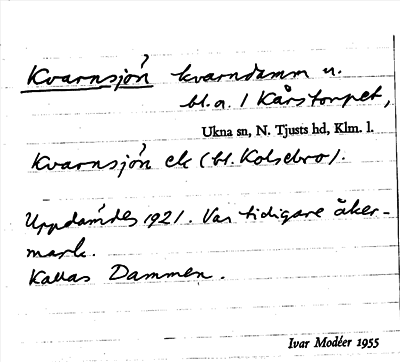 Kvarnsjön kvarndamm u.
bl.a. 1 Kårstorpet,
Ukna sn, N. Tjusts hd, Klm. l.
Kvarnsjön ek (bl. Kolsebro).
Uppdämdes 1921. Var tidigare åker-
mark.
Kallas Dammen.
Ivar Modéer 1955